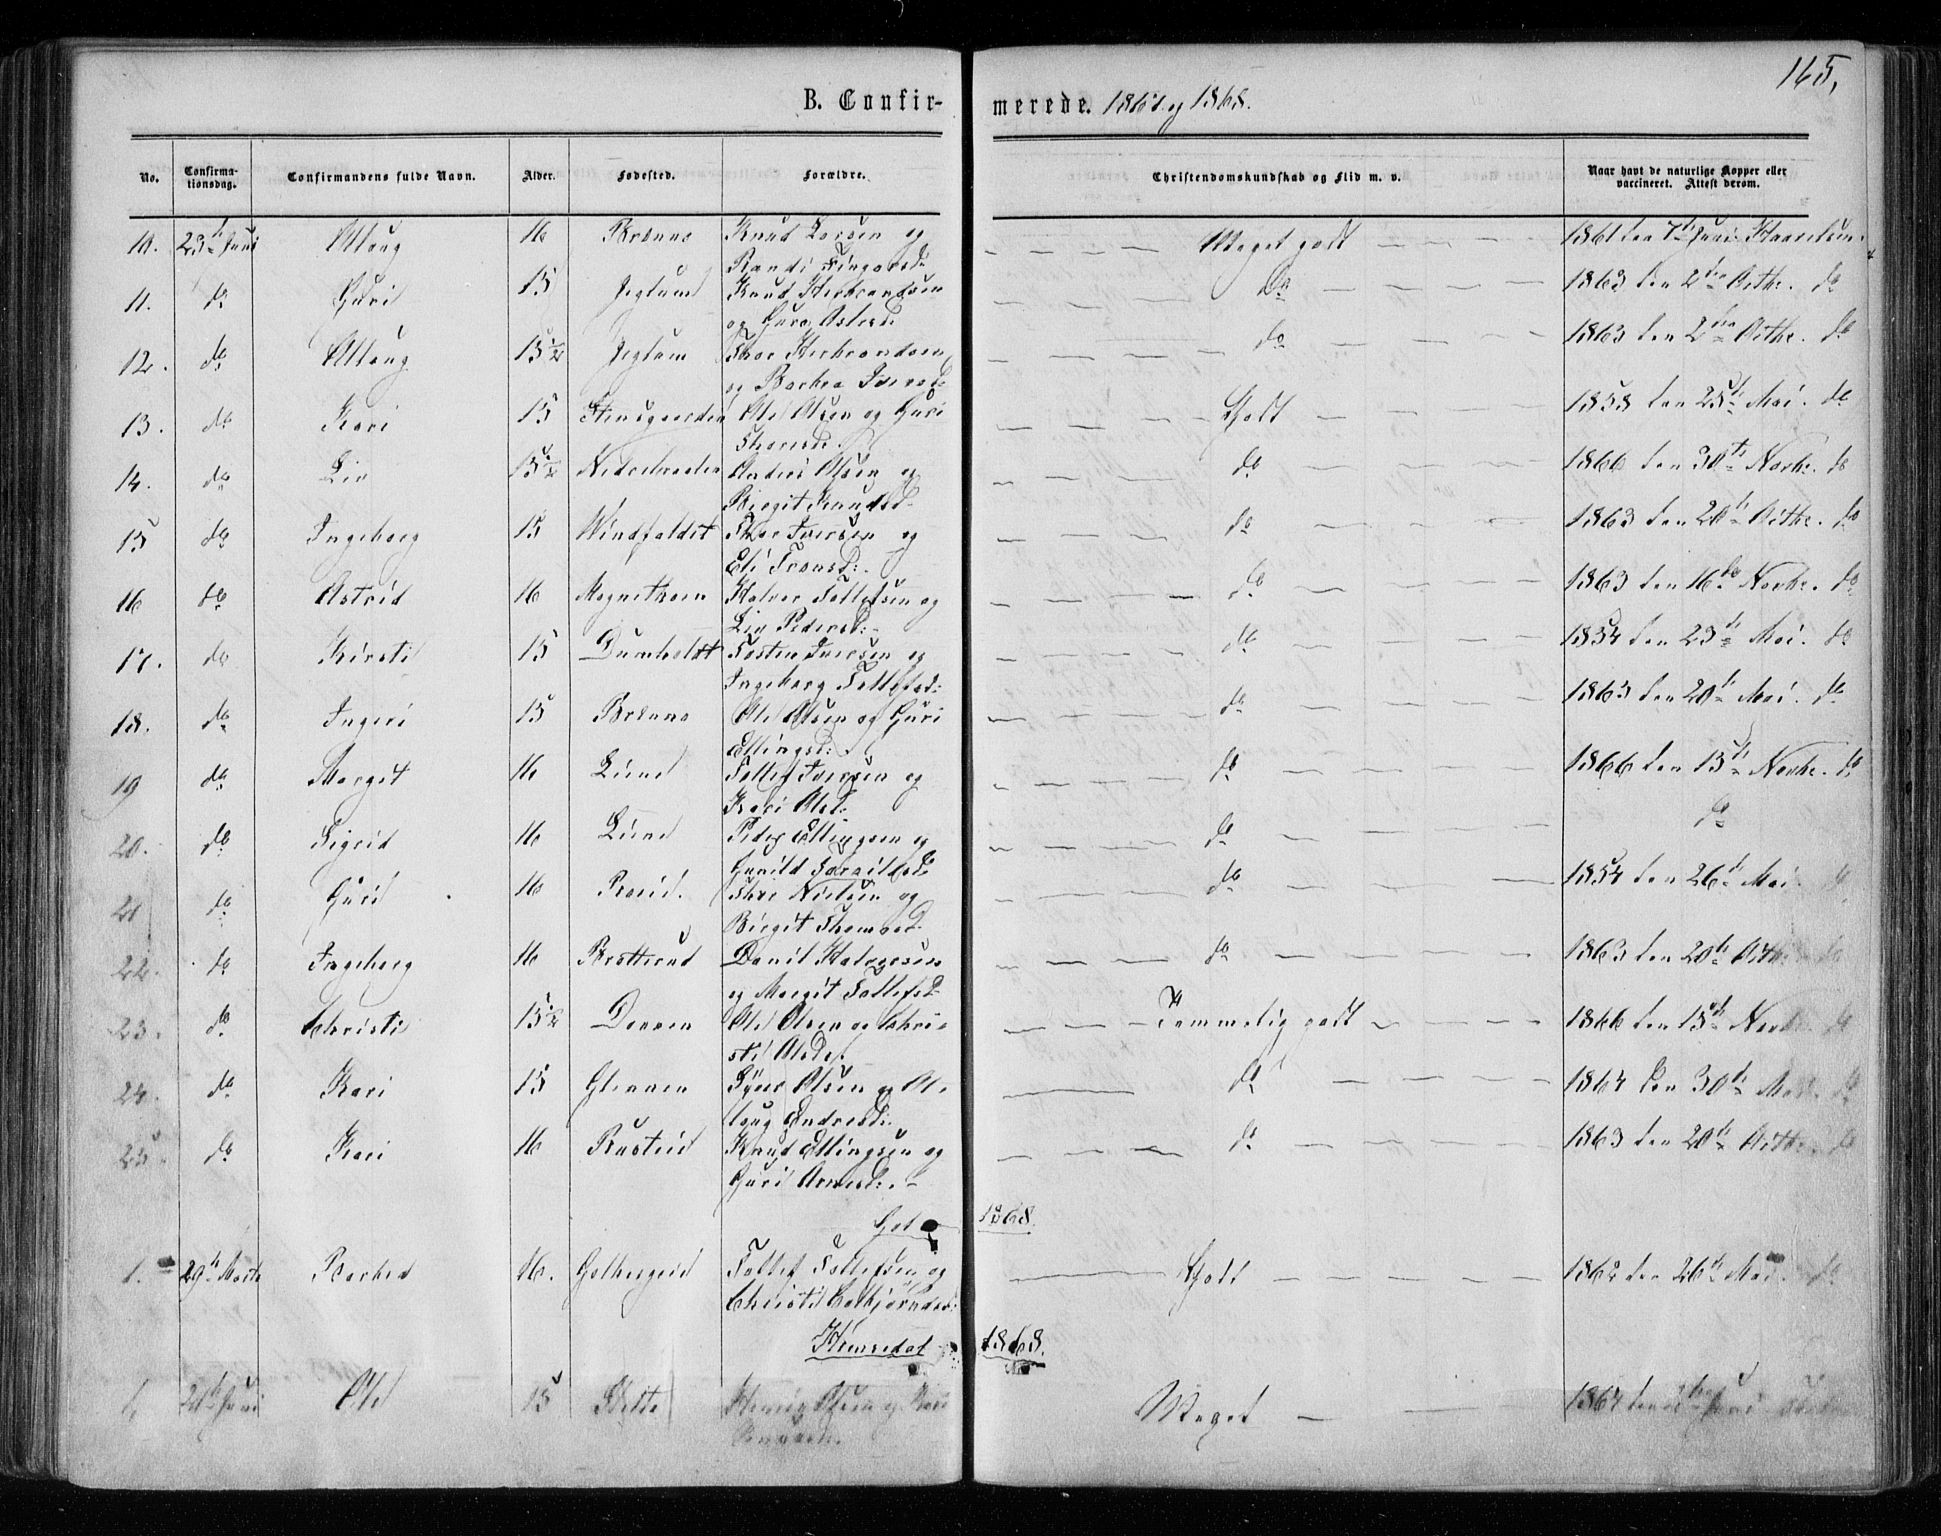 165.
B. Confir-
merede. 1867 og 1868.
No.
Confirma-
tionsdag.
Confirmandens fulde Navn.
Alder.
Fødested.
Forældre.
Christendomskundskab og Flid m. v.
Naar havt de naturlige Kopper eller
vaccineret. Attest derom.
10. 23de Juni Allaug 16 Brenno Knud Larsen og Meget godt 1861 den 7de Juni
Randi
11. do Guri 15 Jeglum Knud Herbrandsen do 1863 den 2den Octbr. do
og Guro Olsd.
12. do Allaug 15½ Jeglum Thor Herbrandsen do 1863 den 2den Octbr. do
og Barbra Iversd.
13. do Kari 15 Ole Olsen og Guri Godt 1858 den 25de Mai. do
Thorsd.
14. do Liv 15½ Anders Olsen og do 1866 den 30te Novbr. do
Birgit Knudsd.
15 do Ingeborg 15 Windfaldet Thor Iversen og do 1863 den 20de Octbr. do
Eli
16 do Astrid 16 Halvor Tollefsen og do 1863 den 16de Novbr. do
Liv Pedersd.
17. do Kirsti 15 Tosten Iversen og do 1854 den 23de Mai. do
Ingeborg Tollefsd.
18. do Ingeri 15 Brenno Ole Olsen og Guri do 1863 den 20de Mai. do
Ellingsd.
19 do Margit 16 Lund Tollef Iversen og do 1866 den 15de Novbr. do
Kari Olsd.
20. do Sigrid 16 Lund Peder Ellingsen og do do
Gunild
21 do Guri 16 Thor Nielsen og do 1854 den 26de Mai do
Birgit
22. do Ingeborg 16 Bratterud Daniel Halvorsen do 1863 den 20de Octbr. do
og Margit Tollefsd.
23. do Christi 15½ Ole Olsen og Chri- Temmelig godt 1866 den 15de Novbr. do
sti Olsd.
24. do Kari 15 Olsen og Al- do 1864 den 30te do
laug Endresd.
25. do Kari 16 Rustad Knud Ellingsen og do 1863 den 20de Octbr. do
Guri Arnesd.
Gol 1868.
1. 29de Marts Barbra 16. Golbergeie Tollef Tollefsen og Godt 1862 den 26de Mai do
Christi
Hemsedal 1868.
1. Juni Ole 15 Olsen og Meget 1864 den Juni